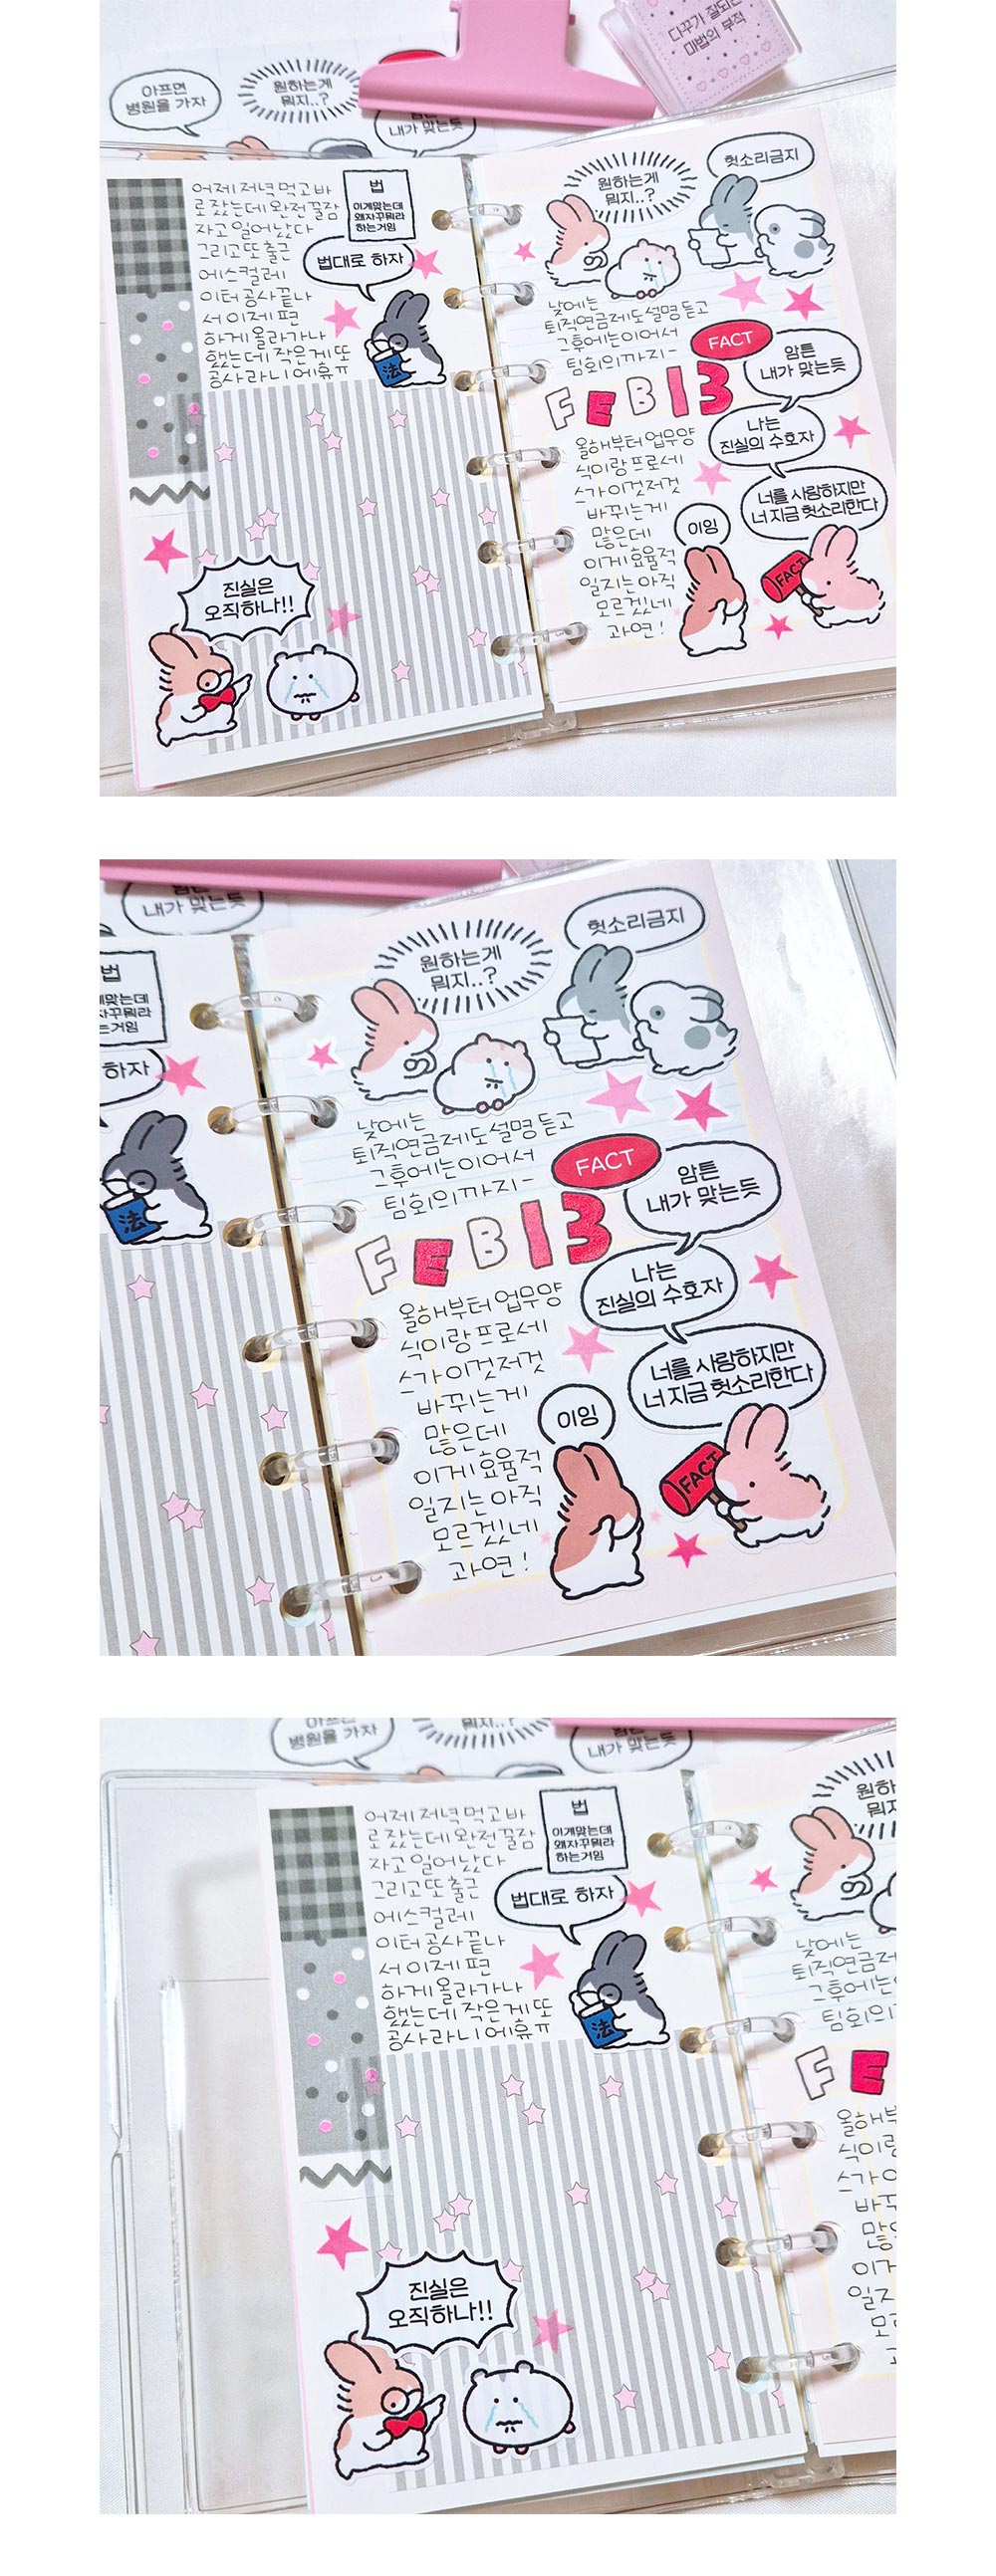 다꾸가 잘되는
미법의 부적
아프면
병원을 가자
원하는게
뭐지..?
내가 맞는듯
어제 저녁 먹고 바
로 잤는데 완전 꿀잠
자고 일어났다
그리고 또 출근
에스컬레
이터 공사 끝나
서 이제 편
하게 올라가나
했는데 작은게 또
공사라니 에휴ㅠ
법
이게맞는데
왜자꾸뭐라
하는거임
법대로 하자
法
진실은
오직하나!!
원하는게
뭐지..?
헛소리금지
낮에는
퇴직연금제도 설명 듣고
그후에는 이어서
팀회의까지-
FACT
FEB 13
암튼
내가 맞는듯
나는
진실의 수호자
너를 사랑하지만
너 지금 헛소리한다
올해부터 업무양
식이랑 프로세
스가 이것저것
바뀌는게
많은데
이게 효율적
일지는 아직
모르겠네
과연!
이잉
FACT
내가 맞는듯
법
하자
法
원하는게
뭐지..?
헛소리금지
낮에는
퇴직연금제도 설명 듣고
그후에는 이어서
팀회의까지-
FACT
FEB 13
암튼
내가 맞는듯
나는
진실의 수호자
너를 사랑하지만
너 지금 헛소리한다
올해부터 업무양
식이랑 프로세
스가 이것저것
바뀌는게
많은데
이게 효율적
일지는 아직
모르겠네
과연!
이잉
FACT
병원을 가자
내가 맞는듯
어제 저녁 먹고 바
로 잤는데 완전 꿀잠
자고 일어났다
그리고 또 출근
에스컬레
이터 공사 끝나
서 이제 편
하게 올라가나
했는데 작은게 또
공사라니 에휴ㅠ
법
이게맞는데
왜자꾸뭐라
하는거임
법대로 하자
法
진실은
오직하나!!
낮에는
퇴직연금제
그후에는
팀회의
FE